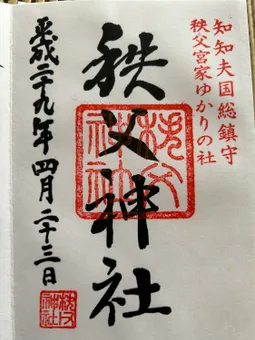 知知夫国総鎮守
秩父宮家ゆかりの社
秩父神社
平成二十九年四月二十三日
秩父神社
秩父神社